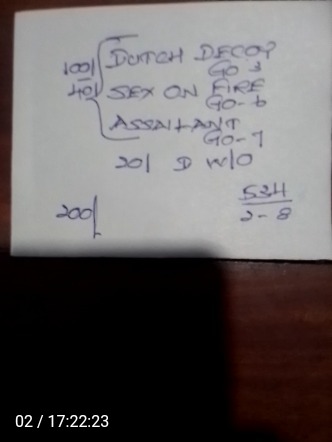 100/ DUTCH DECOY
GO 3
40/ SEX ON FIRE
GO-6
ASSAILANT
GO-7
20/ D W/O
200/
534
2-8
02 / 17:22:23